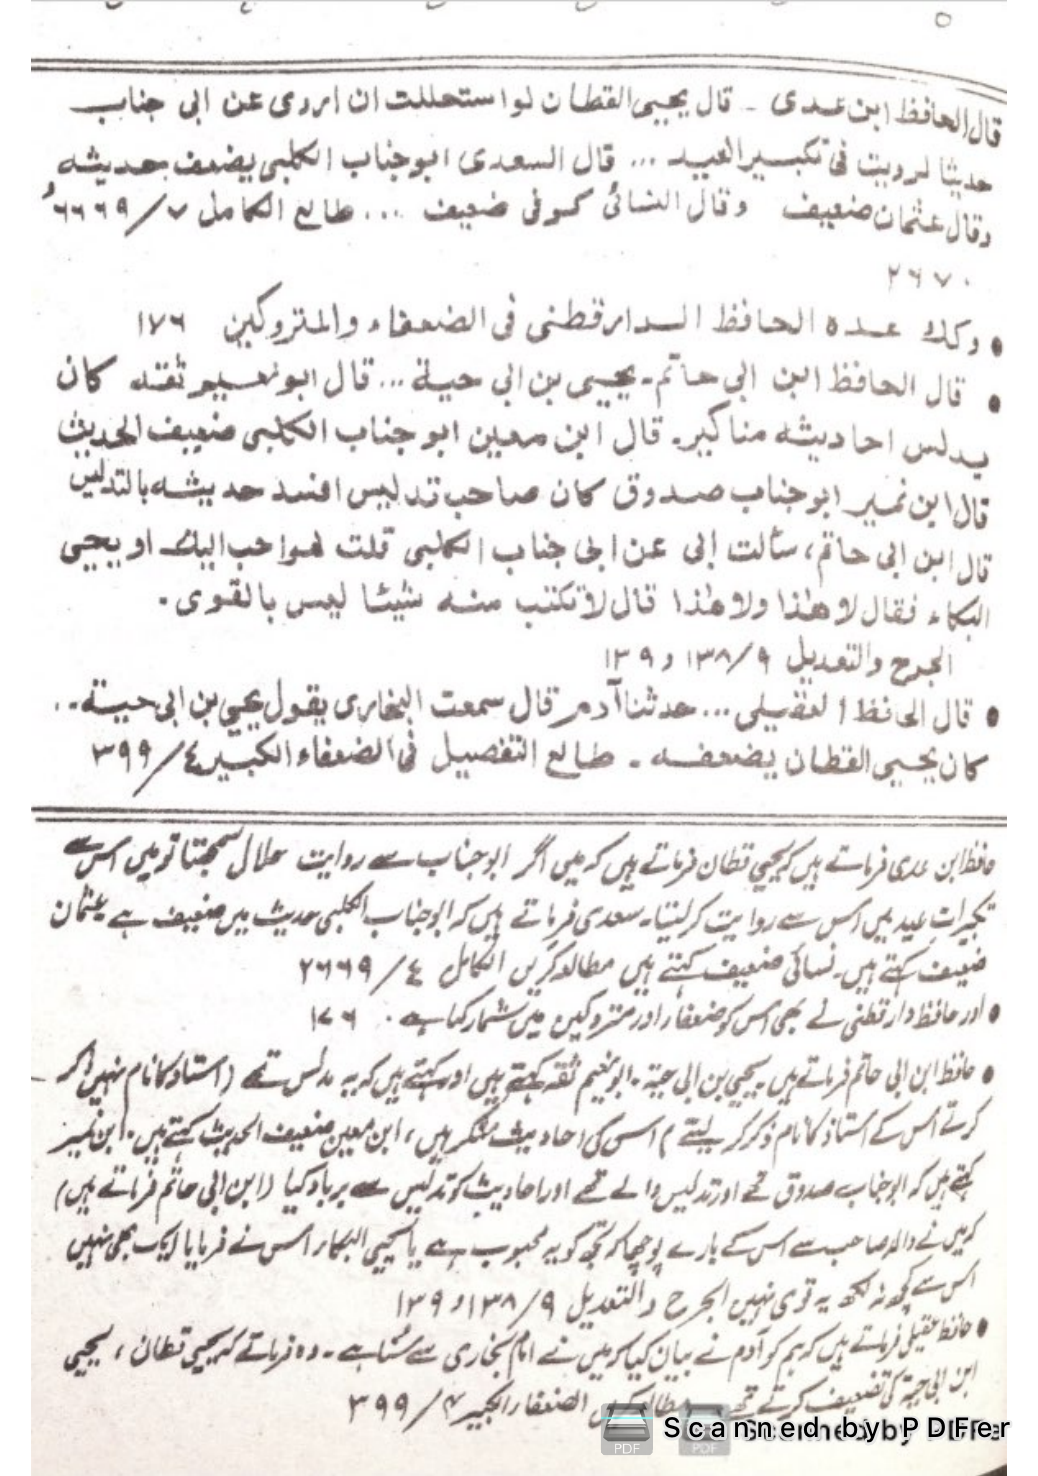 قال الحافظ ابن عدی ۔ قال یحیی القطان لو استحللت ان اروی عن ابی جناب
حدیثا لرویت فی تکبیر العید ... قال السعدی ابو جناب الکلبی یضعف حدیثه
وقال عثمان ضعیف وقال النسائی کوفی ضعیف ... طالع الکامل ۷/۲۶۶۹
۲۶۷۰
• وکذا عده الحافظ الدارقطنی فی الضعفاء والمتروکین ۱۷۶
• قال الحافظ ابن ابی حاتم۔ یحیی بن ابی حیة ... قال ابو نعیم ثقه کان
یدلس احادیثه مناکیر۔ قال ابن معین ابو جناب الکلبی ضعیف الحدیث
قال ابن نمیر ابو جناب صدوق کان صاحب تدلیس افسد حدیثه بالتدلیس
قال ابن ابی حاتم، سألت ابی عن ابی جناب الکلبی قلت هو احب الیك او یحیی
البکاء فقال لا هذا ولا هذا قال لا تکتب منه شیئا لیس بالقوی۔
الجرح والتعدیل ۹/۱۳۸ و ۱۳۹
• قال الحافظ العقیلی ... حدثنا آدم قال سمعت البخاری یقول یحیی بن ابی حیة۔.
کان یحیی القطان یضعفه ۔ طالع التفصیل فی الضعفاء الکبیر ٤/۳۹۹
حافظ ابن عدی فرماتے ہیں کہ یحیی قطان فرماتے ہیں کہ میں اگر ابو جناب سے روایت حلال سمجھتا تو میں اس سے
تکبیراتِ عید میں اس سے روایت کر لیتا۔ سعدی فرماتے ہیں کہ ابو جناب الکلبی حدیث میں ضعیف ہے عثمان
ضعیف کہتے ہیں۔ نسائی ضعیف کہتے ہیں مطالعہ کریں الکامل ٤/۲۶۶۹
• اور حافظ دارقطنی نے بھی اس کو ضعفاء اور متروکین میں شمار کیا ہے ۔ ۱۷۶
• حافظ ابن ابی حاتم فرماتے ہیں ۔ یحیی بن ابی حیة ۔ ابو نعیم ثقہ کہتے ہیں اور کہتے ہیں کہ یہ مدلس تھے (استاد کا نام نہیں ذکر
کرتے اس کے استاذ کا نام ذکر کر لیتے) اسی کی احادیث منکر ہیں، ابن معین ضعیف الحدیث کہتے ہیں۔ ابن نمیر
کہتے ہیں کہ ابو جناب صدوق تھے اور تدلیس والے تھے اور احادیث کو تدلیس سے برباد کیا (ابن ابی حاتم فرماتے ہیں)
کہ میں نے والد صاحب سے اس کے بارے پوچھا کہ تجھ کو یہ محبوب ہے یا یحیی البکاء اس نے فرمایا ایک بھی نہیں
اس سے کچھ نہ لکھ یہ قوی نہیں الجرح والتعدیل ۹/۱۳۸ و ۱۳۹
• حافظ عقیلی فرماتے ہیں کہ ہم کو آدم نے بیان کیا کہ میں نے امام بخاری سے سُنا ہے ۔ وہ فرماتے کہ یحیی قطان، یحیی
ابن ابی حیة کی تضعیف کرتے تھے الضعفاء الکبیر ۴/۳۹۹
PDF PDF Scanned by PDFer